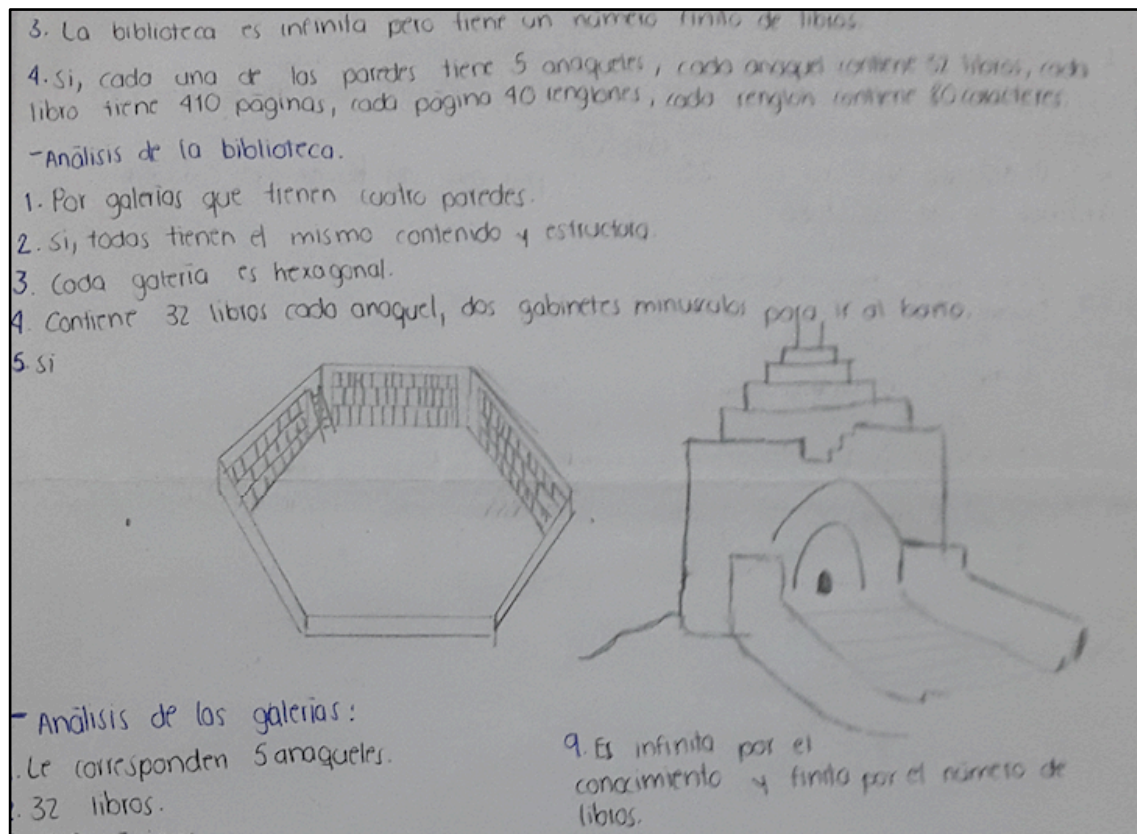 3. La biblioteca es infinita pero tiene un número finito de libros.
4. Si, cada una de las paredes tiene 5 anaqueles, cada anaquel contiene 32 libros, cada
libro tiene 410 páginas, cada página 40 renglones, cada renglon contiene 80 caracteres.
- Análisis de la biblioteca.
1. Por galerias que tienen cuatro paredes.
2. Si, todas tienen el mismo contenido y estructura.
3. Cada galería es hexagonal.
4. Contiene 32 libros cada anaquel, dos gabinetes minusculos para ir al baño.
5. Si
- Análisis de las galerias:
. Le corresponden 5 anaqueles.
. 32 libros.
9. Es infinita por el
conocimiento y finita por el número de
libros.